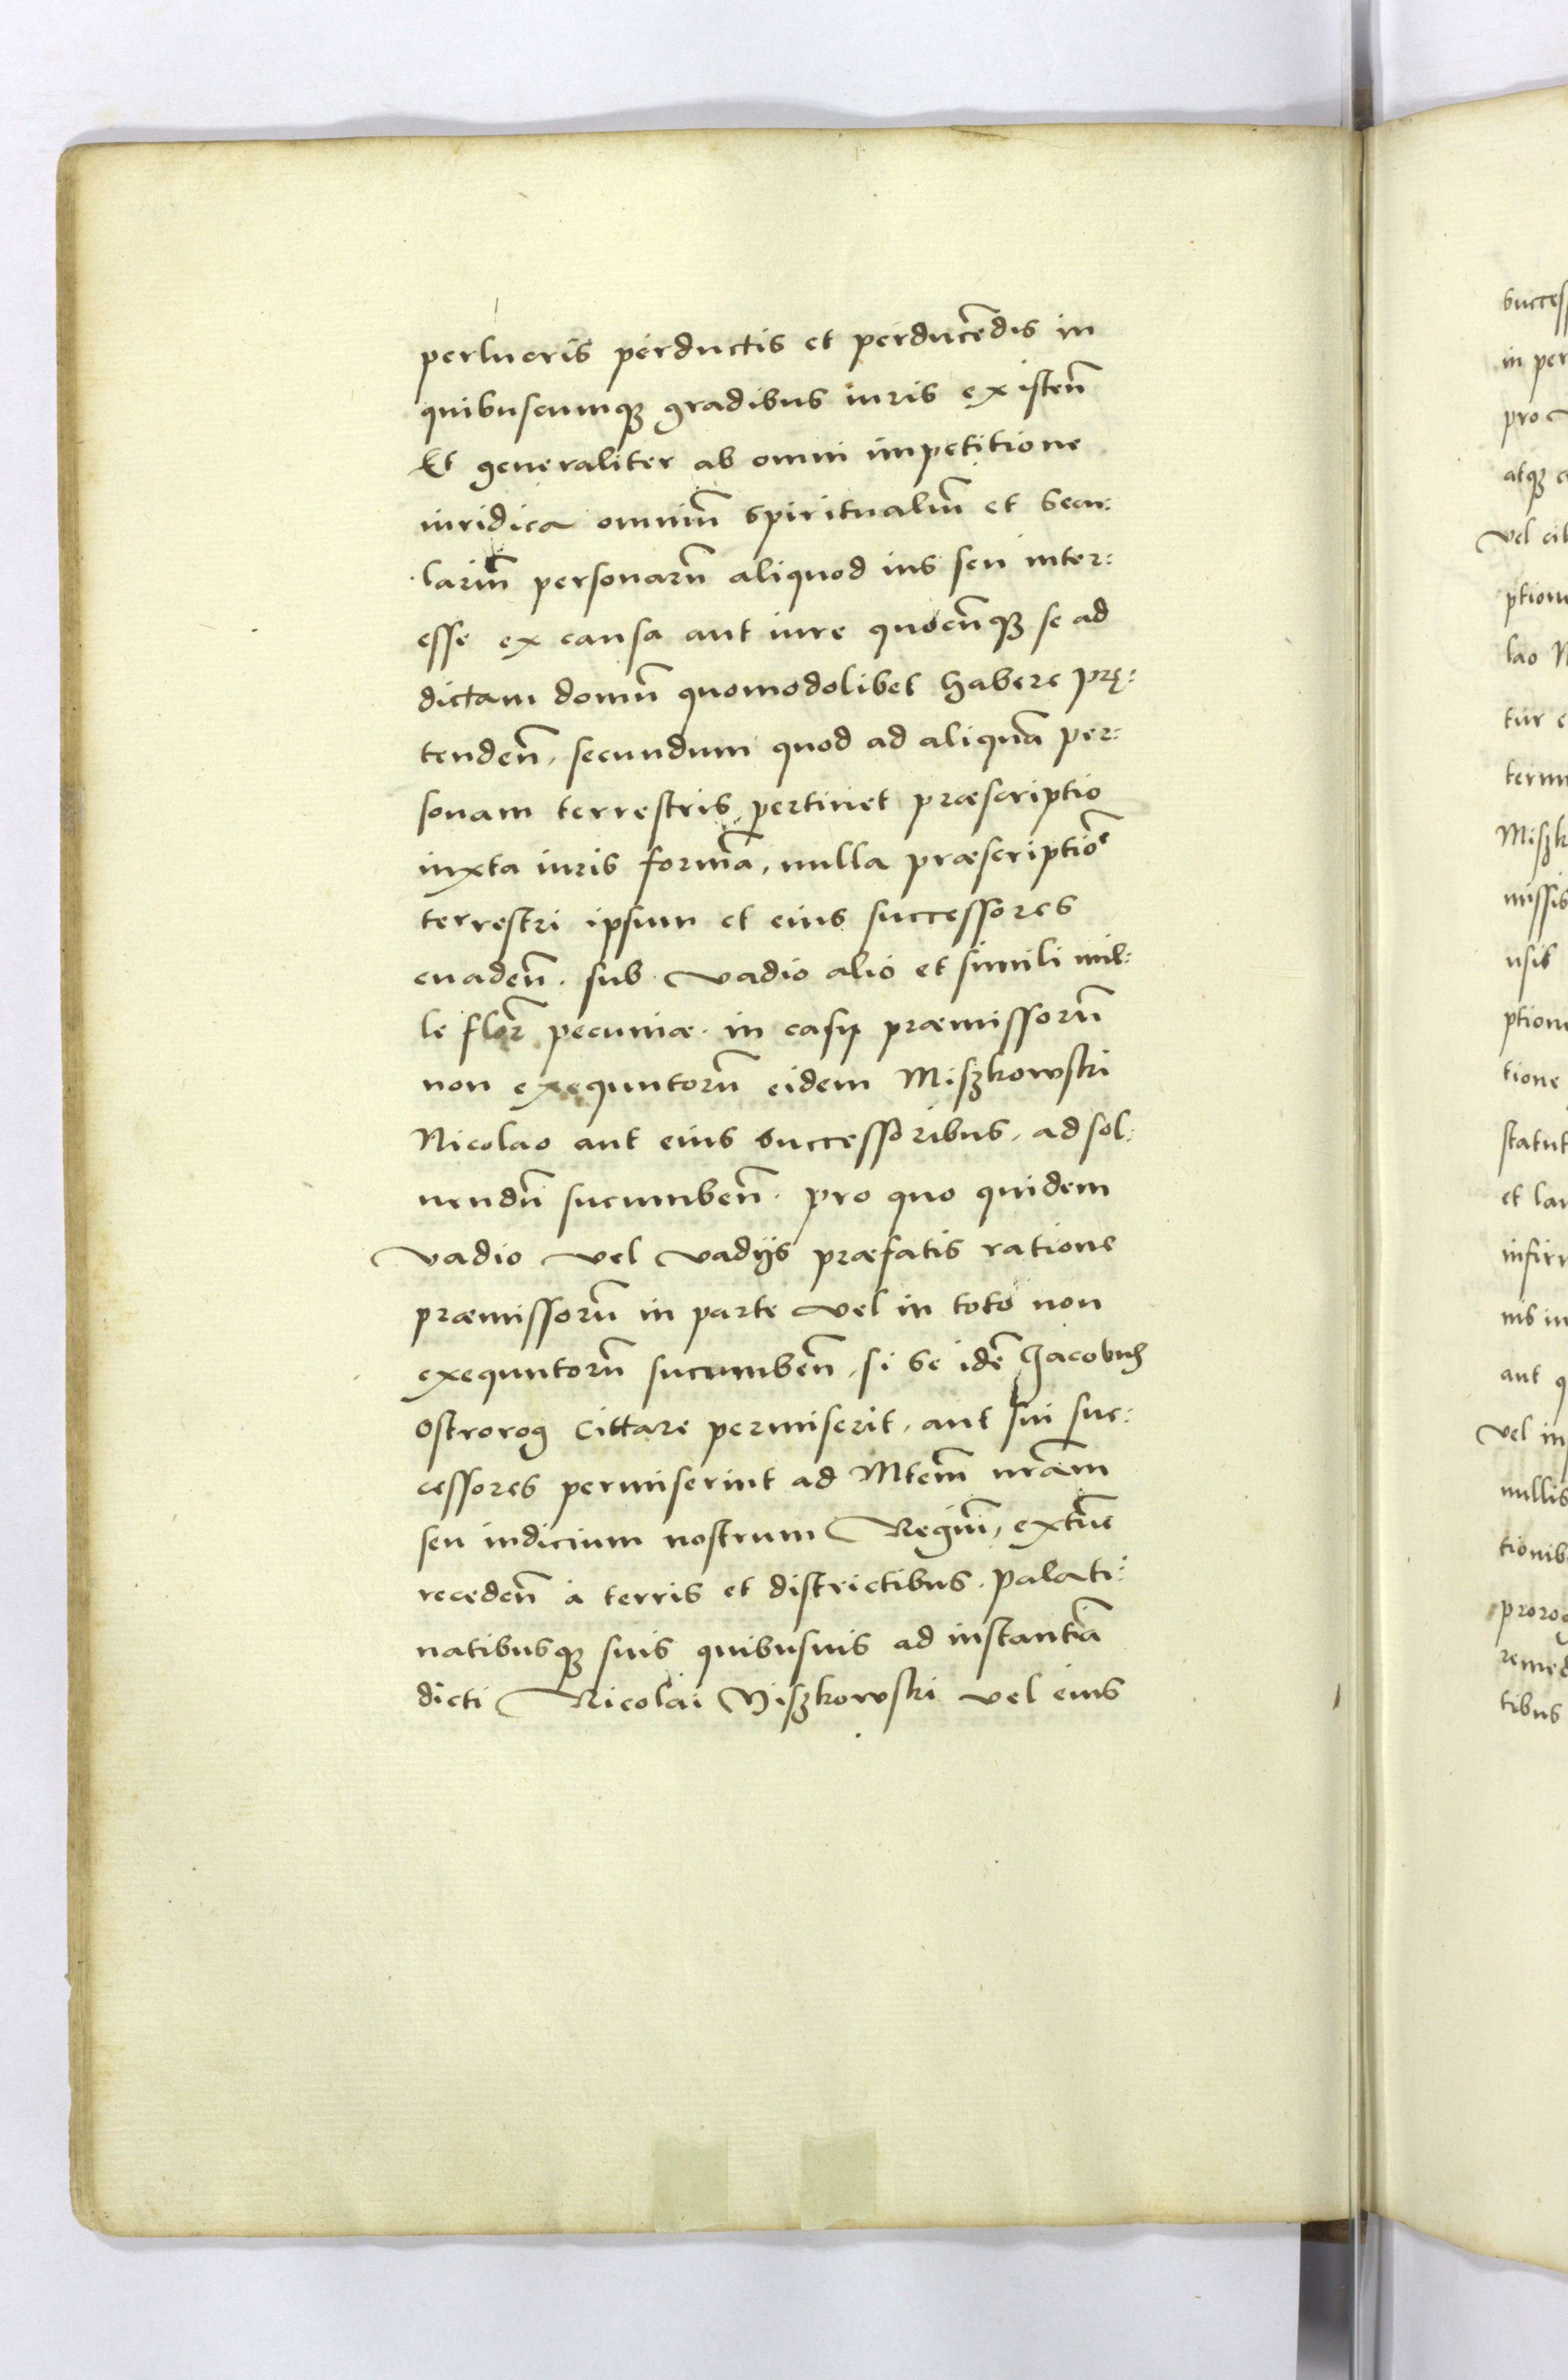 perlucris perductis et perducēdis in
quibuscumqȝ gradibus iuris existeñ
Et generaliter ab omni impetitione
iuridica omniū spiritualiū et secu:
lariū personarū aliquod ius seu inter:
esse ex causa aut iure quocūqȝ se ad
dictam domū quomodolibet habere prę:
tendeñ, secundum quod ad aliquā per:
sonam terrestris pertinet præscriptio
iuxta iuris formā, nulla præscriptiōe
terrestri ipsum et eius successores
euadeñ. sub vadio alio et simili mil:
le flor̃ pecuniæ. in casu præmissorū
non exequutorū eidem Miszkowski
Nicolao aut eius successoribus, ad sol:
uendū sucumbeñ. pro quo quidem
vadio vel vadijs præfatis ratione
præmissorū in parte vel in toto non
exequutorū sucumbeñ, si se idē Jacobus
Ostrorog cittare permiserit, aut sui suc:
cessores permiserint ad Mtem̄ nr̃am
seu iudicium nostrum Regni, extūc
recedeñ à terris et districtibus. palati:
natibusqȝ suis quibusuis ad instantiā
dicti Nicolai Miszkowski vel eius
succes
in per
pro
atqȝ
vel
ptione
lao
tur
term
Miszk
missis
usib
ptione
tione
statut
et
infir
nis in
aut q
vel in
nullis
tionib
prorog
remed
tibus